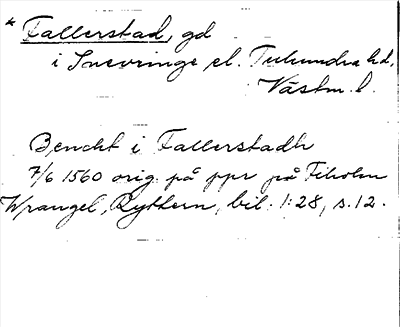 * Fallerstad, gd
i Snevringe el. Tuhundra hd,
Västm. l.
Bencht i Fallerstadh
7/6 1560 orig. på ppr på Fiholm
Wrangel, Rythern, bil. 1:28, s. 12.